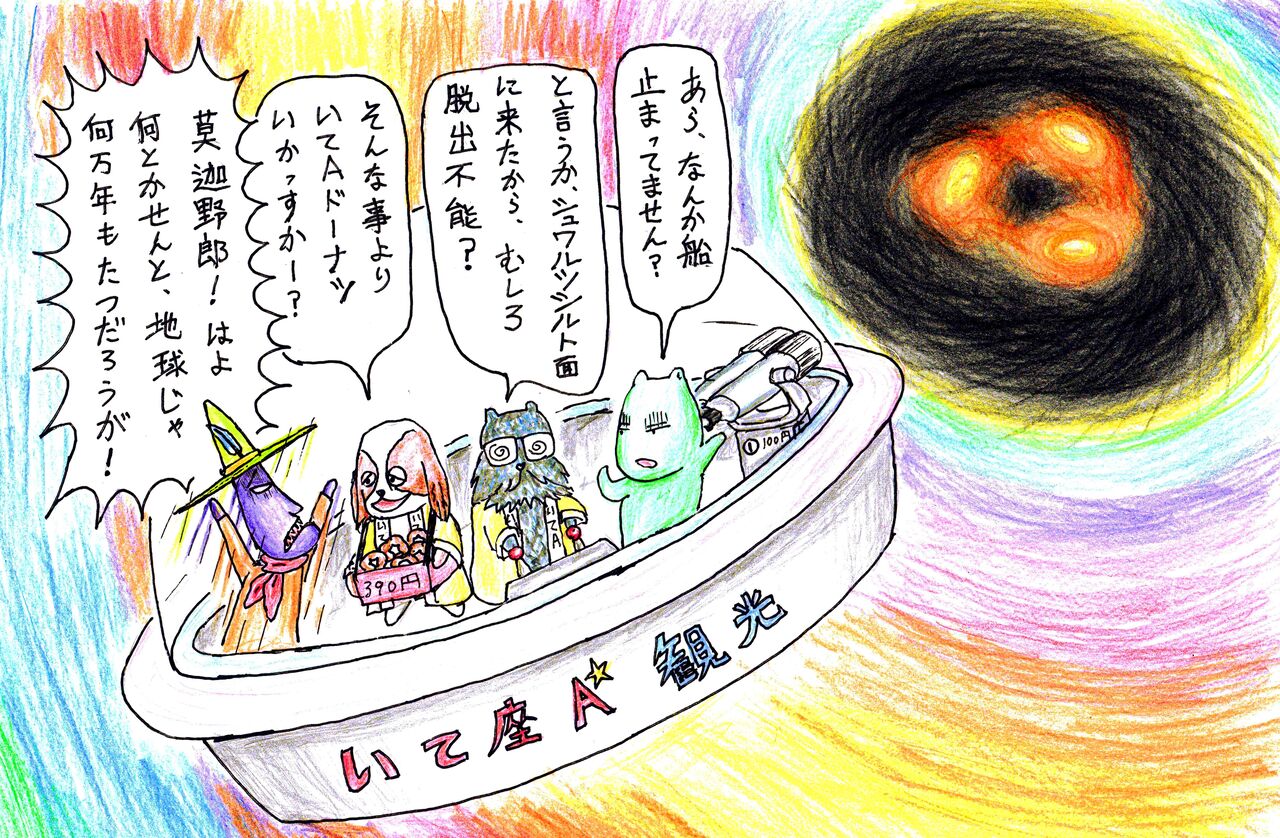 あら、なんか船
止まってません?
と言うか、シュワルツシルト面
に来たから、むしろ
脱出不能?
そんな事より
いてAドーナツ
いかっすかー?
莫迦野郎!はよ
何とかせんと、地球じゃ
何万年もたつだろうが!
100円
いてA
いて
390円
いて座A☆観光